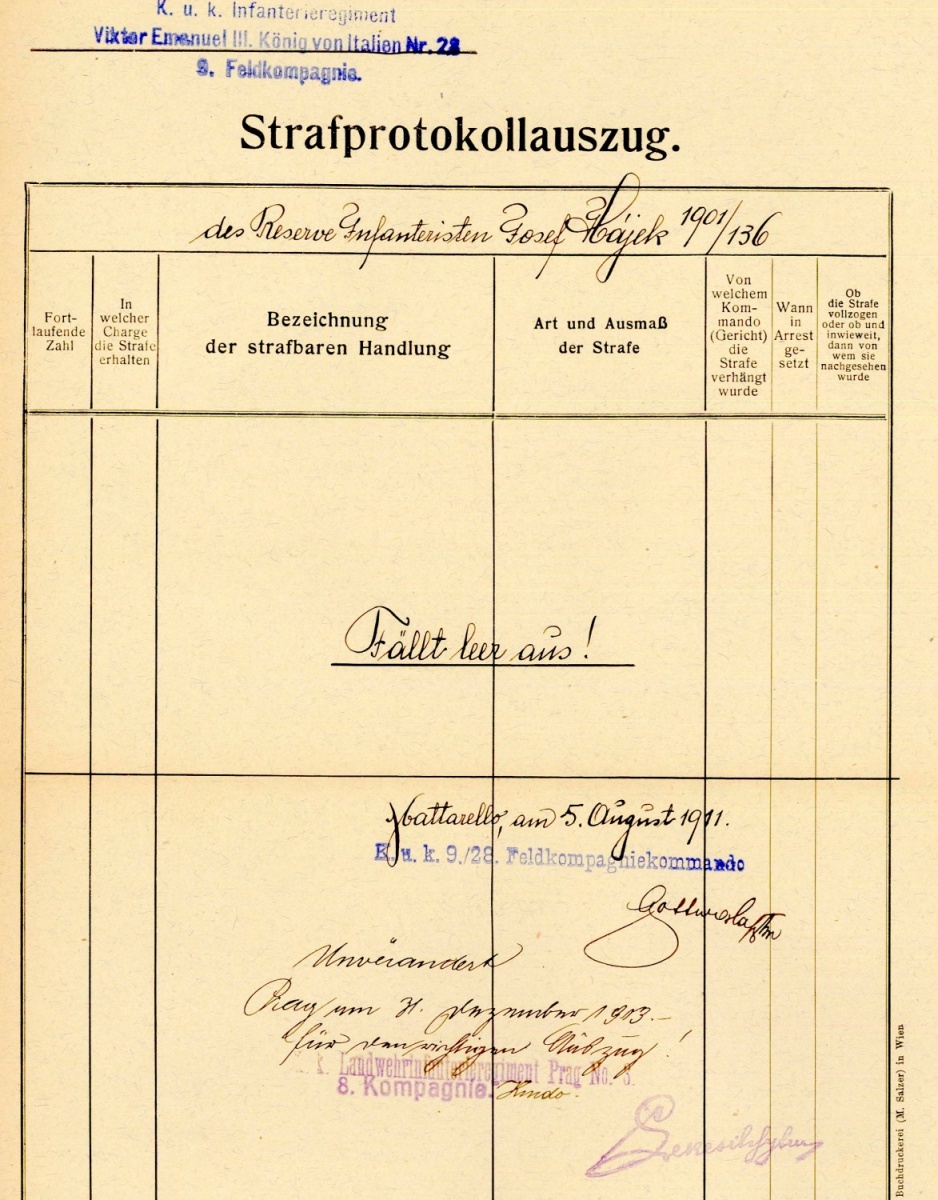 K. u. k. Infanterieregiment
Viktor Emanuel III. König von Italien Nr. 28
9. Feldkompagnie.
Strafprotokollauszug.
des Reserve Infanteristen Josef Hájek 1901/136
Fort-
laufende
Zahl
In
welcher
Charge
die Strafe
erhalten
Bezeichnung
der strafbaren Handlung
Art und Ausmaß
der Strafe
Von
welchem
Kom-
mando
(Gericht)
die
Strafe
verhängt
wurde
Wann
in
Arrest
ge-
setzt
Ob
die Strafe
vollzogen
oder ob und
inwieweit,
dann von
wem sie
nachgesehen
wurde
Fällt leer aus!
Mattarello, am 5. August 1911.
K. u. k. 9./28. Feldkompagniekommando
Unverändert
Prag am 31. Dezember 1913.-
für den richtigen Auszug!
k. Landwehrinfanterieregiment Prag No. 8.
8. Kompagnie. Kmdo.
Buchdruckerei (M. Salzer) in Wien